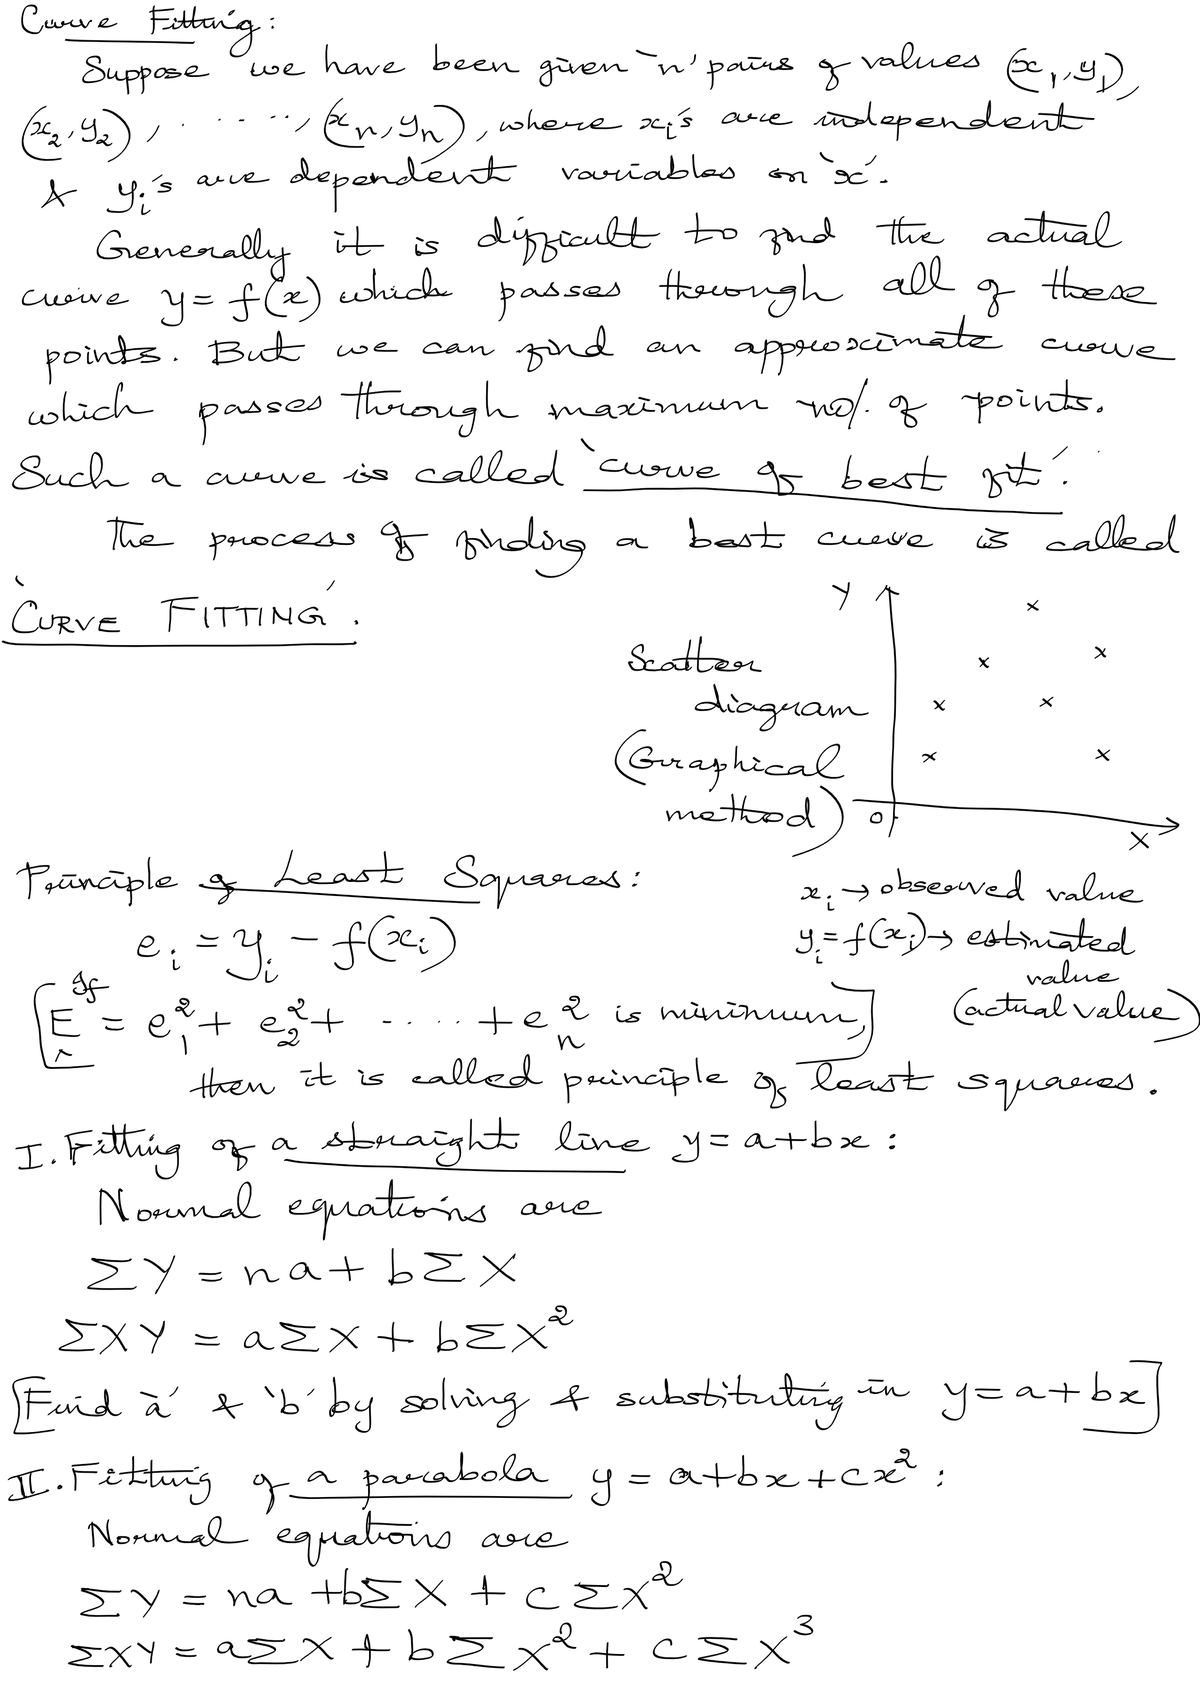 Curve Fitting:
Suppose we have been given `n' pairs of values (x₁, y₁),
(x₂, y₂), ......, (xₙ, yₙ), where xᵢ's are independent
& yᵢ's are dependent variables on `x'.
Generally it is difficult to find the actual
curve y = f(x) which passes through all of these
points. But we can find an approximate curve
which passes through maximum no/. of points.
Such a curve is called `curve of best fit'.
The process of finding a best curve is called
`CURVE FITTING'.
Y
Scatter
diagram
(Graphical
method)
O
X
Principle of Least Squares:
xᵢ → observed value
eᵢ = yᵢ - f(xᵢ)
yᵢ = f(xᵢ) → estimated
value
(actual value)
If
[E = e₁² + e₂² + ...... + eₙ² is minimum,]
then it is called principle of least squares.
I. Fitting of a straight line y = a + bx :
Normal equations are
ΣY = na + bΣX
ΣXY = aΣX + bΣX²
[Find `a' & `b' by solving & substituting in y = a + bx]
II. Fitting of a parabola y = a + bx + cx² :
Normal equations are
ΣY = na + bΣX + cΣX²
ΣXY = aΣX + bΣX² + cΣX³